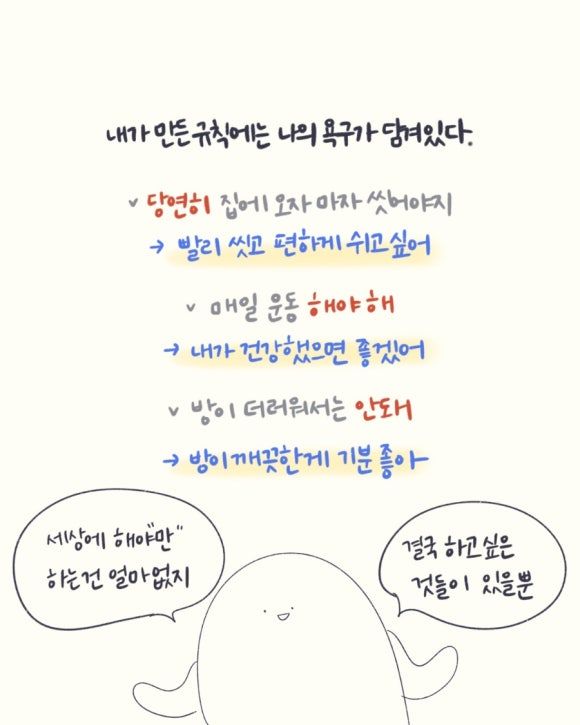 내가 만든 규칙에는 나의 욕구가 담겨있다.
✓ 당연히 집에 오자마자 씻어야지
→ 빨리 씻고 편하게 쉬고싶어
✓ 매일 운동 해야 해
→ 내가 건강했으면 좋겠어
✓ 방이 더러워서는 안돼
→ 방이 깨끗한게 기분 좋아
세상에 해야"만"
하는건 얼마 없지
결국 하고싶은
것들이 있을뿐